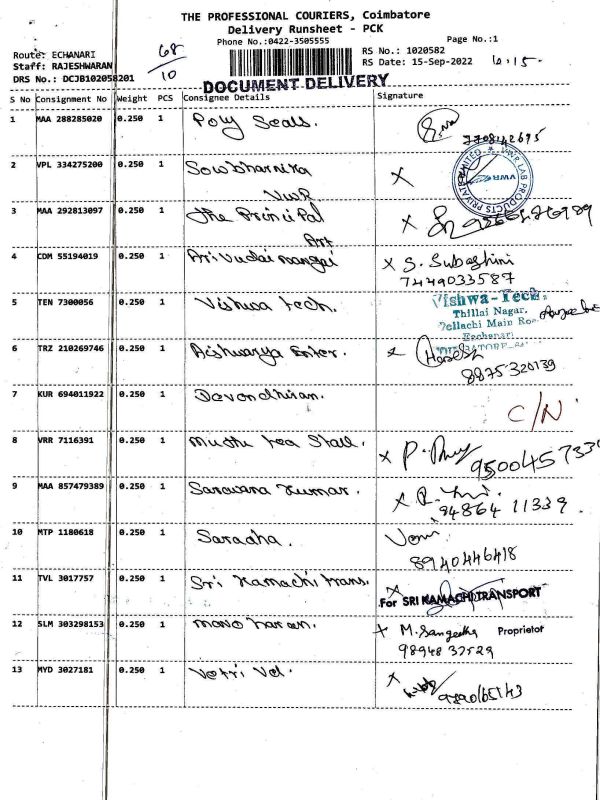 THE PROFESSIONAL COURIERS, Coimbatore
Delivery Runsheet - PCK
Phone No.:0422-3505555
Page No.:1
Route: ECHANARI
68
RS No.: 1020582
Staff: RAJESHWARAN
10
RS Date: 15-Sep-2022
DRS No.: DCJB102058201
DOCUMENT DELIVERY
S No Consignment No Weight PCS Consignee Details Signature
1 MAA 288285020 0.250 1 Poly Seals.
7708142695
2 VPL 334275200 0.250 1 Sowbharnika X
VWR
VWR LAB PRODUCTS PRIVATE LIMITED
3 MAA 292813097 0.250 1 The Principal X
Art
4 CDM 55194019 0.250 1 Arivudai nangai X S. Subashini
7449033587
5 TEN 7300056 0.250 1 Vishwa tech.
Vishwa-Tech
Thillai Nagar,
Pollachi Main Ro
Eachanari
6 TRZ 210269746 0.250 1 Aishwarya Enter.
8875320139
7 KUR 694011922 0.250 1 Devendhiran.
C/N
8 VRR 7116391 0.250 1 Muthu tea Stall. X
9 MAA 857479389 0.250 1 Saravana Kumar. X
94864 11339
10 MTP 1180618 0.250 1 Saradha.
8940446418
11 TVL 3017757 0.250 1 Sri Kamachi trans. X
For SRI KAMACHI TRANSPORT
12 SLM 303298153 0.250 1 Mano haran. M. Sangeetha Proprietor
98948 37529
13 MYD 3027181 0.250 1 Vetri Vel. X
9790165143